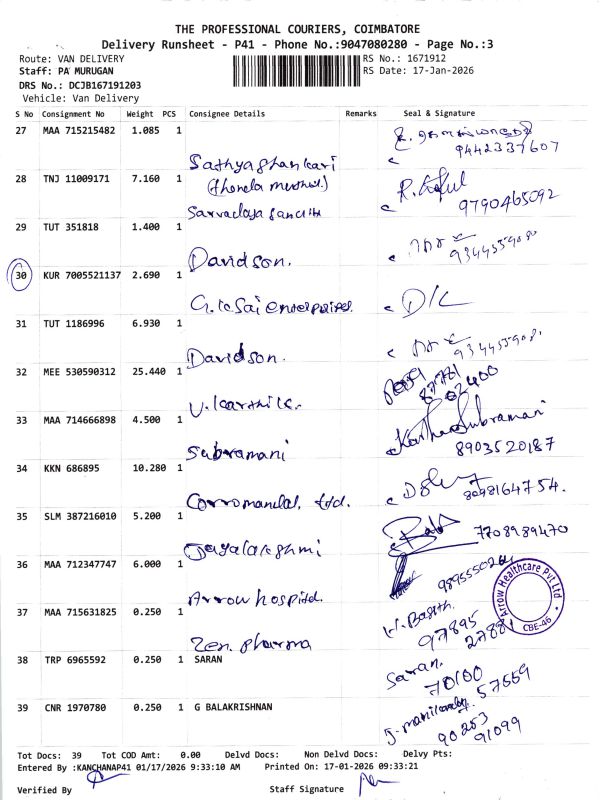 THE PROFESSIONAL COURIERS, COIMBATORE
Delivery Runsheet - P41 - Phone No.:9047080280 - Page No.:3
Route: VAN DELIVERY
RS No.: 1671912
Staff: PA MURUGAN
RS Date: 17-Jan-2026
DRS No.: DCJB167191203
Vehicle: Van Delivery
S No Consignment No Weight PCS Consignee Details Remarks Seal & Signature
27 MAA 715215482 1.085 1
9442337607
Sathyashankari
28 TNJ 11009171 7.160 1 (Honda
9790465092
Sarvadaya
29 TUT 351818 1.400 1
Davidson.
30 KUR 7005521137 2.690 1 D/C
G.K Sai enterprises.
31 TUT 1186996 6.930 1
Davidson.
32 MEE 530590312 25.440 1
87781
02400
V. karthik.
33 MAA 714666898 4.500 1
Subramani
8903520187
34 KKN 686895 10.280 1
Corromandal. Ltd.
35 SLM 387216010 5.200 1
7708989470
Jayalakshmi
36 MAA 712347747 6.000 1
Arrow Healthcare Pvt Ltd
CBE-46
Arrow hospital.
37 MAA 715631825 0.250 1
H. Basith.
97895
27881
Zen. pharma
38 TRP 6965592 0.250 1 SARAN
Saran.
70100
57559
39 CNR 1970780 0.250 1 G BALAKRISHNAN
90253
91099
Tot Docs: 39 Tot COD Amt: 0.00 Delvd Docs: Non Delvd Docs: Delvy Pts:
Entered By :KANCHANAP41 01/17/2026 9:33:10 AM Printed On: 17-01-2026 09:33:21
Verified By Staff Signature